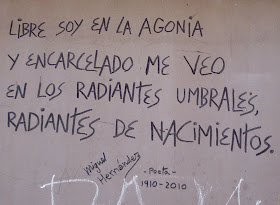 LIBRE SOY EN LA AGONIA
Y ENCARCELADO ME VEO
EN LOS RADIANTES UMBRALES,
RADIANTES DE NACIMIENTOS.
Miguel
Hernández
- Poeta -
1910-2010